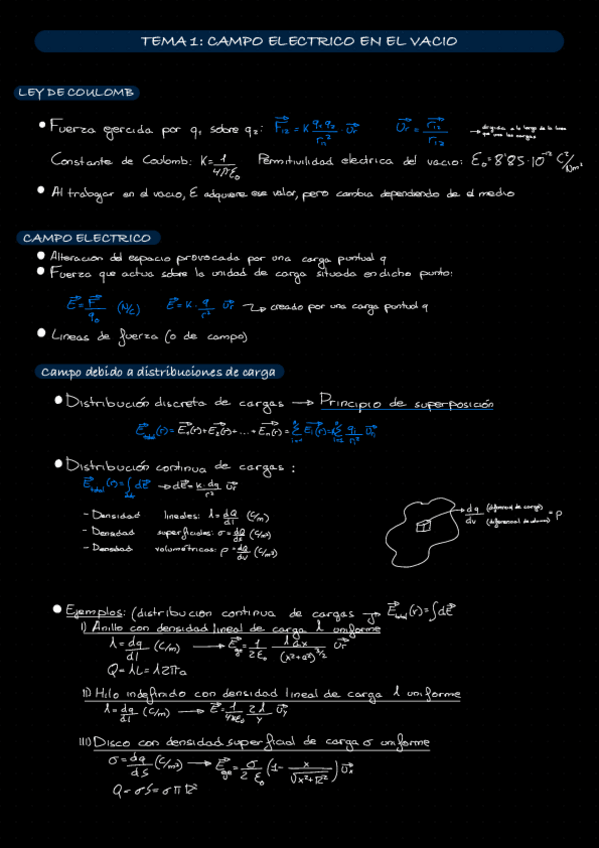 TEMA 1: CAMPO ELECTRICO EN EL VACIO
LEY DE COULOMB
• Fuerza ejercida por q₁ sobre q₂: F⃗₁₂ = K q₁q₂/r₁₂² · u⃗r   u⃗r = r⃗₁₂/r₁₂ → dirigida a lo largo de la línea que une las cargas
Constante de Coulomb: K = 1/4πε₀   Permitividad electrica del vacio: ε₀ = 8'85·10⁻¹² C²/Nm²
• Al trabajar en el vacio, ε adquiere ese valor, pero cambia dependiendo de el medio
CAMPO ELECTRICO
• Alteracion del espacio provocada por una carga puntual q
• Fuerza que actua sobre la unidad de carga situada en dicho punto:
E⃗ = F⃗/q₀ (N/C)   E⃗ = K · q/r² u⃗r → creado por una carga puntual q
• Lineas de fuerza (o de campo)
Campo debido a distribuciones de carga
• Distribución discreta de cargas → Principio de superposición
E⃗total(r) = E⃗₁(r) + E⃗₂(r) + ... + E⃗n(r) = Σ E⃗i(r) = K Σ qi/ri² u⃗ri
• Distribución continua de cargas:
E⃗total(r) = ∫ dE⃗ → dE⃗ = K·dq/r² u⃗r
- Densidad lineales: λ = dQ/dl (C/m)
- Densidad superficiales: σ = dQ/dS (C/m²)
- Densidad volumétricas: ρ = dQ/dV (C/m³)
dq (diferencial de carga) / dv (diferencial de volumen) = ρ
• Ejemplos: (distribucion continua de cargas → E⃗total(r) = ∫dE⃗
I) Anillo con densidad lineal de carga λ uniforme
λ = dq/dl (C/m) → E⃗ = 1/2ε₀ λax/(x²+a²)^3/2 u⃗r
Q = λL = λ2πa
II) Hilo indefinido con densidad lineal de carga λ uniforme
λ = dq/dl (C/m) → E⃗ = 1/4πε₀ 2λ/y u⃗y
III) Disco con densidad superficial de carga σ uniforme
σ = dq/dS (C/m²) → E⃗ = σ/2ε₀ (1 - x/√(x²+R²)) u⃗x
Q = σS = σπR²